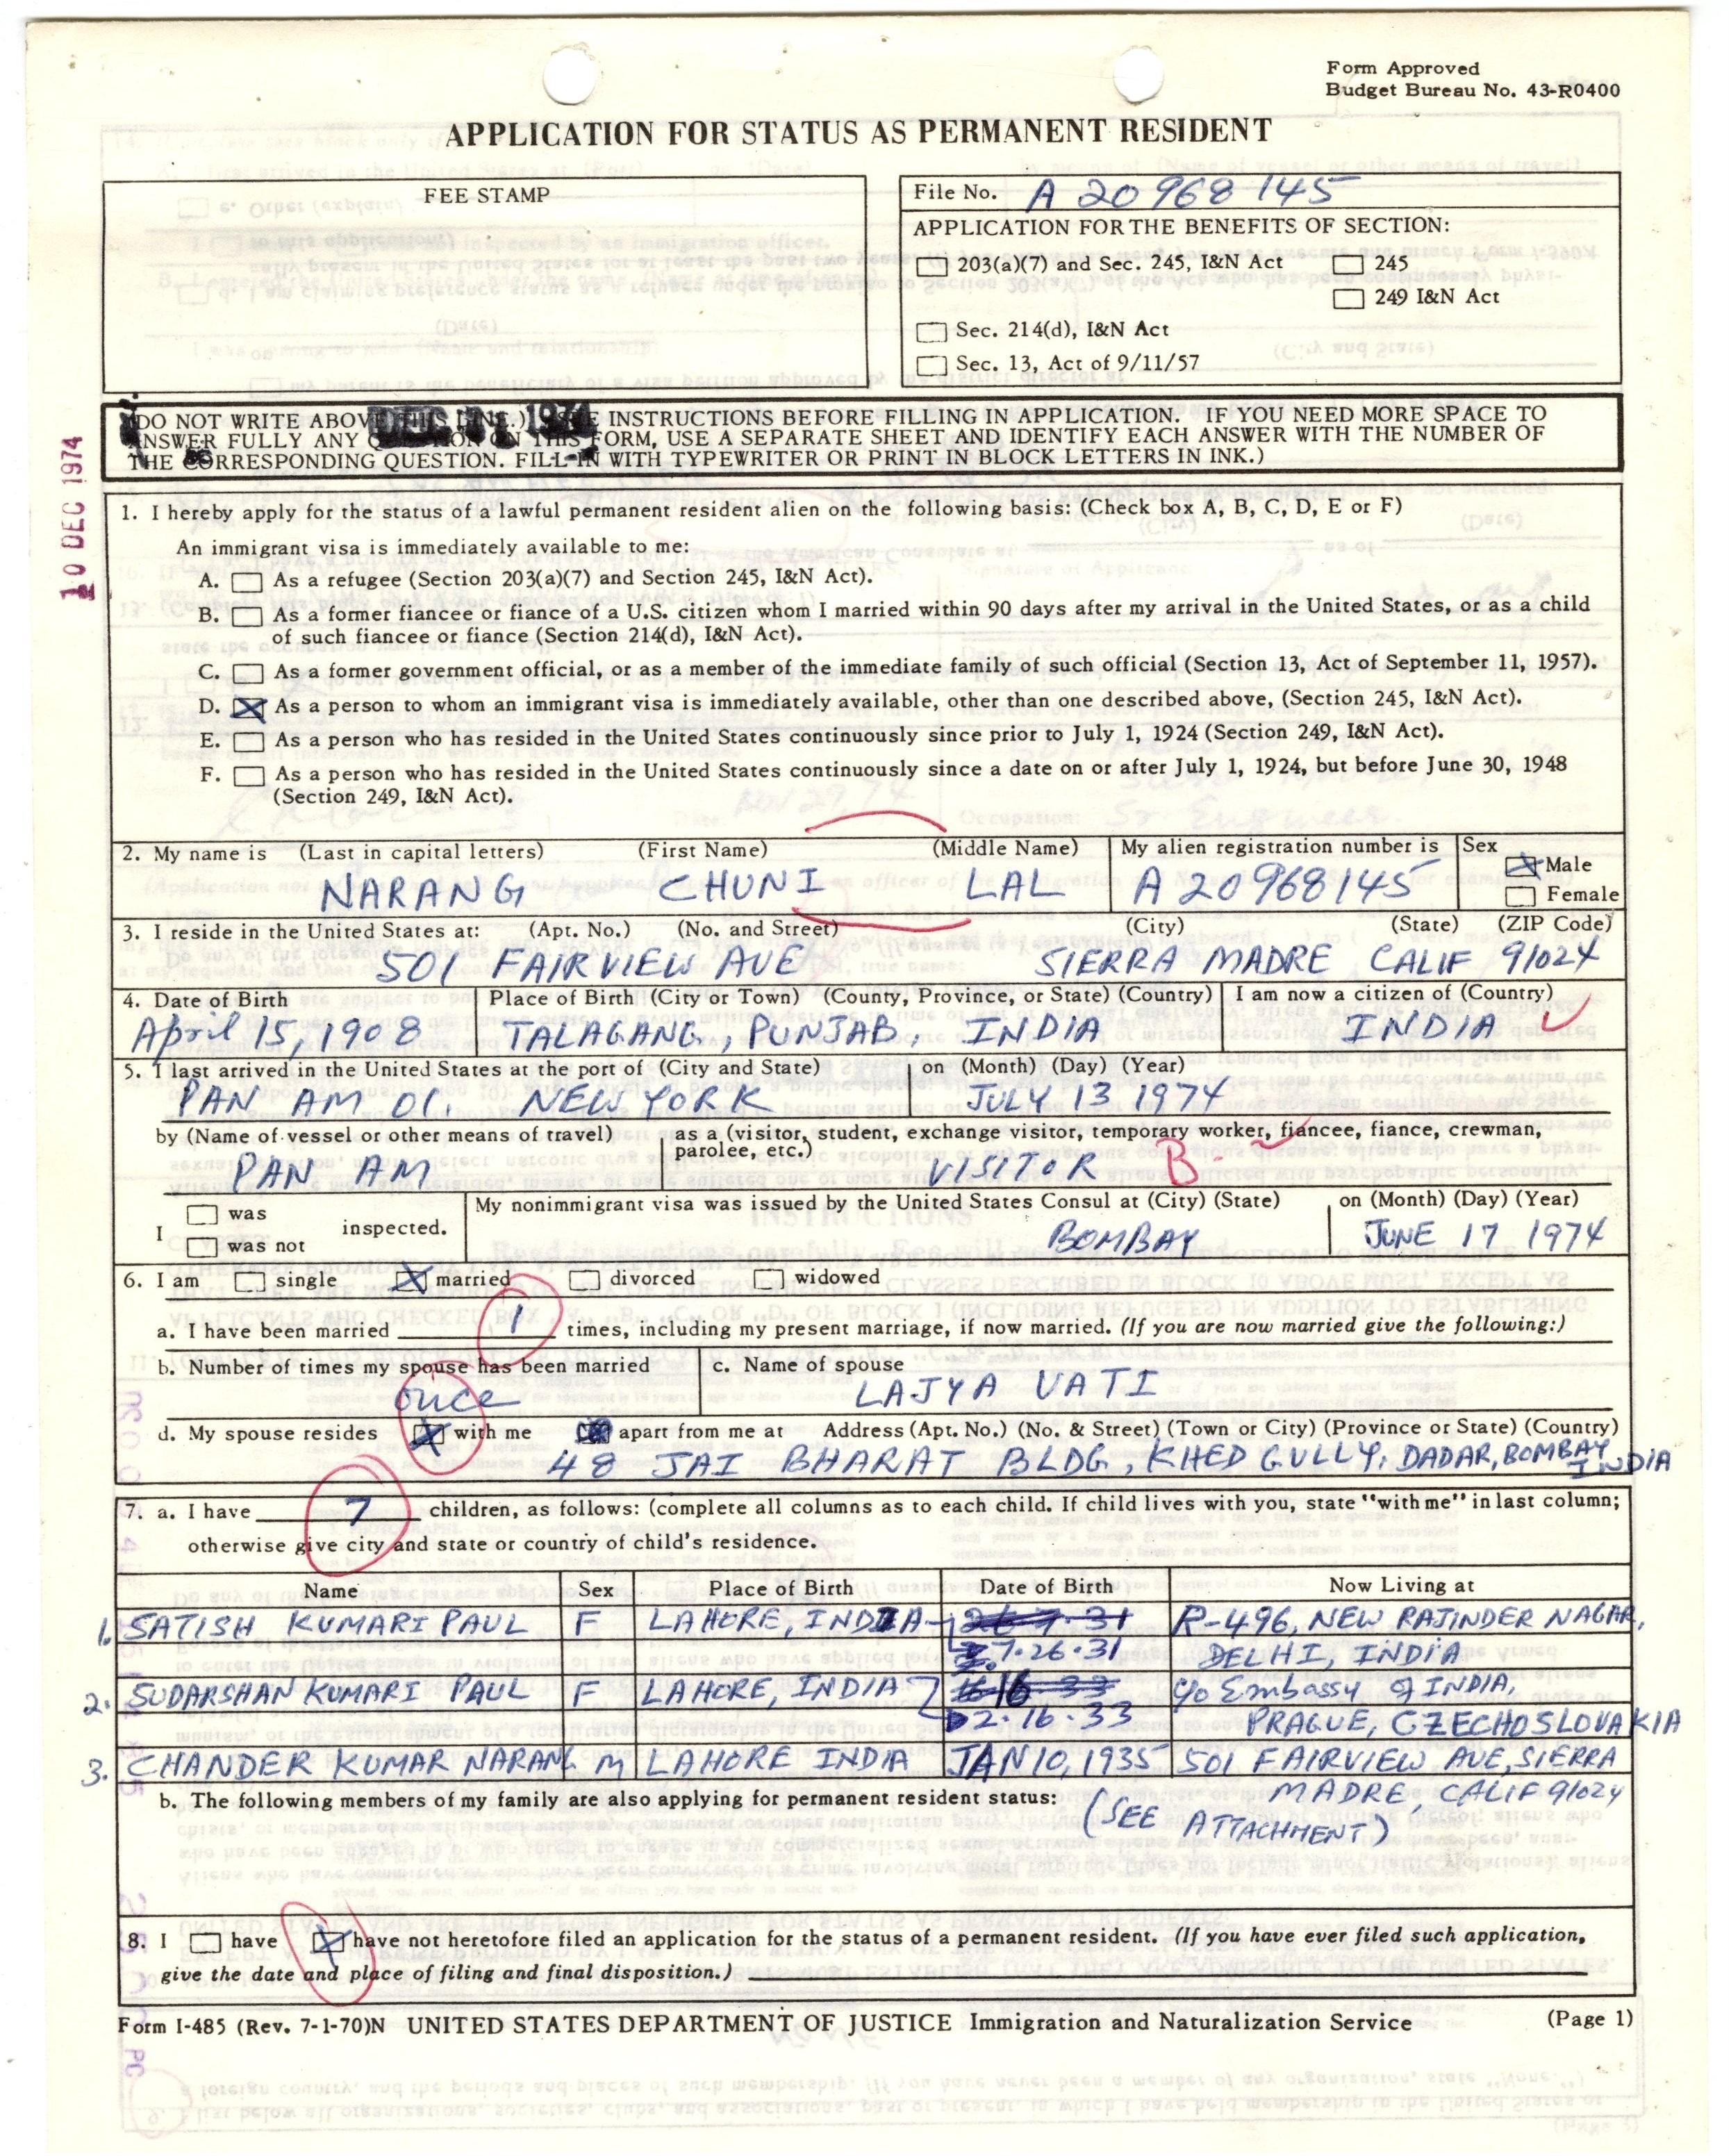 Form Approved
Budget Bureau No. 43-R0400
APPLICATION FOR STATUS AS PERMANENT RESIDENT
FEE STAMP
File No. A 20 968 145
APPLICATION FOR THE BENEFITS OF SECTION:
203(a)(7) and Sec. 245, I&N Act 245
249 I&N Act
Sec. 214(d), I&N Act
Sec. 13, Act of 9/11/57
10 DEC 1974
(DO NOT WRITE ABOVE THIS LINE.) SEE INSTRUCTIONS BEFORE FILLING IN APPLICATION. IF YOU NEED MORE SPACE TO
ANSWER FULLY ANY QUESTION ON THIS FORM, USE A SEPARATE SHEET AND IDENTIFY EACH ANSWER WITH THE NUMBER OF
THE CORRESPONDING QUESTION. FILL-IN WITH TYPEWRITER OR PRINT IN BLOCK LETTERS IN INK.)
1. I hereby apply for the status of a lawful permanent resident alien on the following basis: (Check box A, B, C, D, E or F)
An immigrant visa is immediately available to me:
A. As a refugee (Section 203(a)(7) and Section 245, I&N Act).
B. As a former fiancee or fiance of a U.S. citizen whom I married within 90 days after my arrival in the United States, or as a child
of such fiancee or fiance (Section 214(d), I&N Act).
C. As a former government official, or as a member of the immediate family of such official (Section 13, Act of September 11, 1957).
D. X As a person to whom an immigrant visa is immediately available, other than one described above, (Section 245, I&N Act).
E. As a person who has resided in the United States continuously since prior to July 1, 1924 (Section 249, I&N Act).
F. As a person who has resided in the United States continuously since a date on or after July 1, 1924, but before June 30, 1948
(Section 249, I&N Act).
2. My name is (Last in capital letters) (First Name) (Middle Name) My alien registration number is Sex
X Male
NARANG CHUNI LAL A 20968145 Female
3. I reside in the United States at: (Apt. No.) (No. and Street) (City) (State) (ZIP Code)
501 FAIRVIEW AVE SIERRA MADRE CALIF 91024
4. Date of Birth Place of Birth (City or Town) (County, Province, or State) (Country) I am now a citizen of (Country)
April 15, 1908 TALAGANG, PUNJAB, INDIA INDIA
5. I last arrived in the United States at the port of (City and State) on (Month) (Day) (Year)
PAN AM 01 NEW YORK JULY 13 1974
by (Name of vessel or other means of travel) as a (visitor, student, exchange visitor, temporary worker, fiancee, fiance, crewman,
parolee, etc.)
PAN AM VISITOR B-
I was was not inspected. My nonimmigrant visa was issued by the United States Consul at (City) (State) on (Month) (Day) (Year)
BOMBAY JUNE 17 1974
6. I am single X married divorced widowed
a. I have been married 1 times, including my present marriage, if now married. (If you are now married give the following:)
b. Number of times my spouse has been married c. Name of spouse
once LAJYA VATI
d. My spouse resides X with me apart from me at Address (Apt. No.) (No. & Street) (Town or City) (Province or State) (Country)
48 JAI BHARAT BLDG, KHED GULLY, DADAR, BOMBAY
INDIA
7. a. I have 7 children, as follows: (complete all columns as to each child. If child lives with you, state "with me" in last column;
otherwise give city and state or country of child's residence.
Name Sex Place of Birth Date of Birth Now Living at
1. SATISH KUMARI PAUL F LAHORE, INDIA 26 7 31 R-496, NEW RAJINDER NAGAR,
7.26.31 DELHI, INDIA
2. SUDARSHAN KUMARI PAUL F LAHORE, INDIA c/o Embassy of INDIA,
2.16.33 PRAGUE, CZECHOSLOVAKIA
3. CHANDER KUMAR NARANG M LAHORE INDIA JAN 10, 1935 501 FAIRVIEW AVE, SIERRA
MADRE, CALIF 91024
b. The following members of my family are also applying for permanent resident status: (SEE ATTACHMENT)
8. I have X have not heretofore filed an application for the status of a permanent resident. (If you have ever filed such application,
give the date and place of filing and final disposition.)
Form I-485 (Rev. 7-1-70)N UNITED STATES DEPARTMENT OF JUSTICE Immigration and Naturalization Service (Page 1)